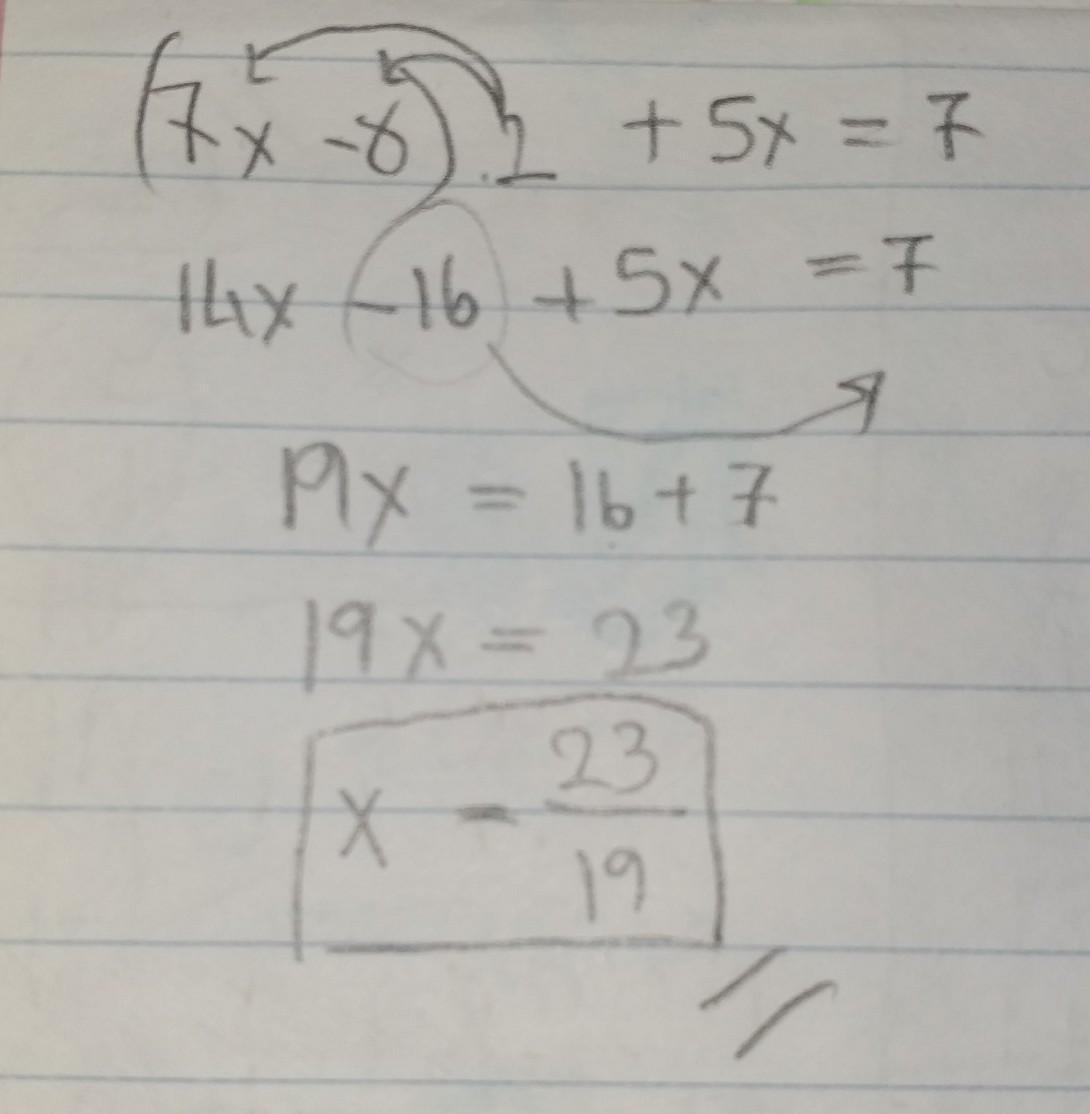 (7x -8).2 +5x = 7
14x -16 +5x = 7
19x = 16+7
19x = 23
x = 23/19